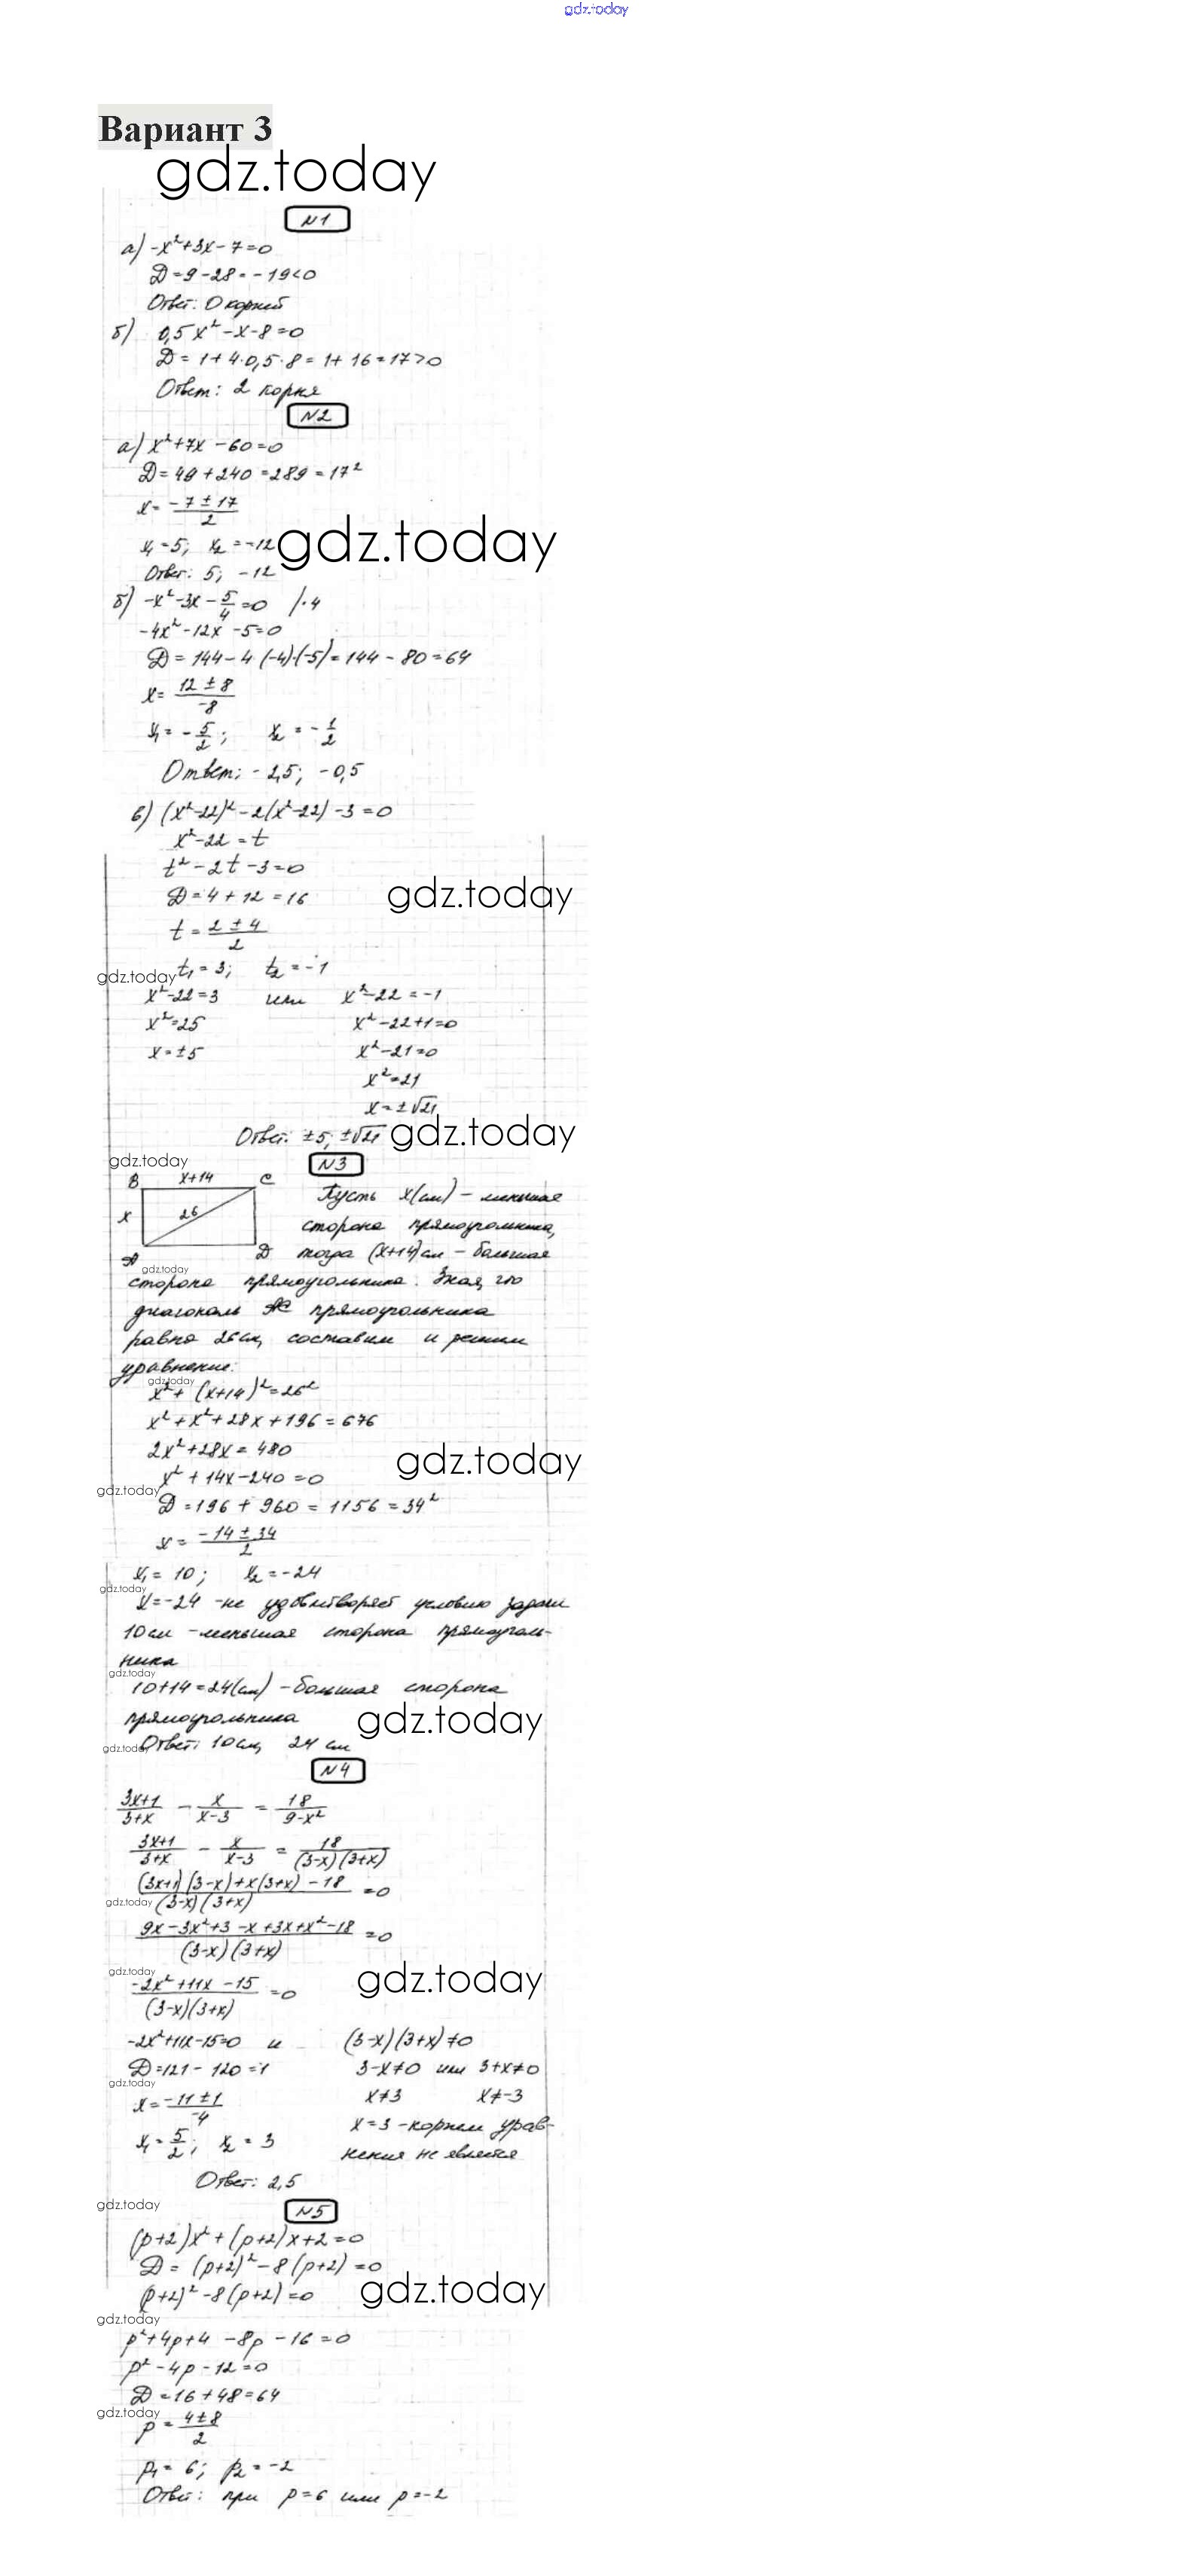 gdz.today
Вариант 3
gdz.today
N1
а) -x²+3x-7=0
D=9-28=-19<0
Ответ: 0 корней
б) 0,5x²-x-8=0
D=1+4·0,5·8=1+16=17>0
Ответ: 2 корня
N2
а) x²+7x-60=0
D=49+240=289=17²
x=(-7±17)/2
x₁=5; x₂=-12
gdz.today
Ответ: 5; -12
б) -x²-3x-5/4=0 /·4
-4x²-12x-5=0
D=144-4·(-4)·(-5)=144-80=64
x=(12±8)/-8
x₁=-5/2; x₂=-1/2
Ответ: -2,5; -0,5
в) (x²-22)²-2(x²-22)-3=0
x²-22=t
t²-2t-3=0
D=4+12=16
gdz.today
t=(2±4)/2
gdz.today
t₁=3; t₂=-1
x²-22=3 или x²-22=-1
x²=25 x²-22+1=0
x=±5 x²-21=0
x²=21
x=±√21
Ответ: ±5; ±√21
gdz.today
gdz.today
N3
B x+14 C
x 26
A D
Пусть x(см) - меньшая
сторона прямоугольника,
тогда (x+14)см - большая
gdz.today
сторона прямоугольника. Зная, что
диагональ AC прямоугольника
равна 26см, составим и решим
уравнение:
gdz.today
x²+(x+14)²=26²
x²+x²+28x+196=676
2x²+28x=480
gdz.today
x²+14x-240=0
gdz.today
D=196+960=1156=34²
x=(-14±34)/2
x₁=10; x₂=-24
gdz.today
x=-24 -не удовлетворяет условию задачи
10см -меньшая сторона прямоуголь-
ника
gdz.today
10+14=24(см) -большая сторона
прямоугольника
gdz.today
gdz.today
Ответ: 10см, 24 см
N4
(3x+1)/(3+x) - x/(x-3) = 18/(9-x²)
(3x+1)/(3+x) - x/(x-3) = 18/((3-x)(3+x))
((3x+1)(3-x)+x(3+x)-18)/((3-x)(3+x))=0
gdz.today
(9x-3x²+3-x+3x+x²-18)/((3-x)(3+x))=0
gdz.today
gdz.today
(-2x²+11x-15)/((3-x)(3+x))=0
-2x²+11x-15=0 и (3-x)(3+x)≠0
D=121-120=1 3-x≠0 или 3+x≠0
gdz.today
x=(-11±1)/-4 x≠3 x≠-3
x₁=5/2; x₂=3 x=3 -корнем урав-
нения не является
Ответ: 2,5
gdz.today
N5
(p+2)x²+(p+2)x+2=0
D=(p+2)²-8(p+2)=0
(p+2)²-8(p+2)=0
gdz.today
gdz.today
p²+4p+4-8p-16=0
p²-4p-12=0
D=16+48=64
gdz.today
p=(4±8)/2
p₁=6; p₂=-2
Ответ: при p=6 или p=-2